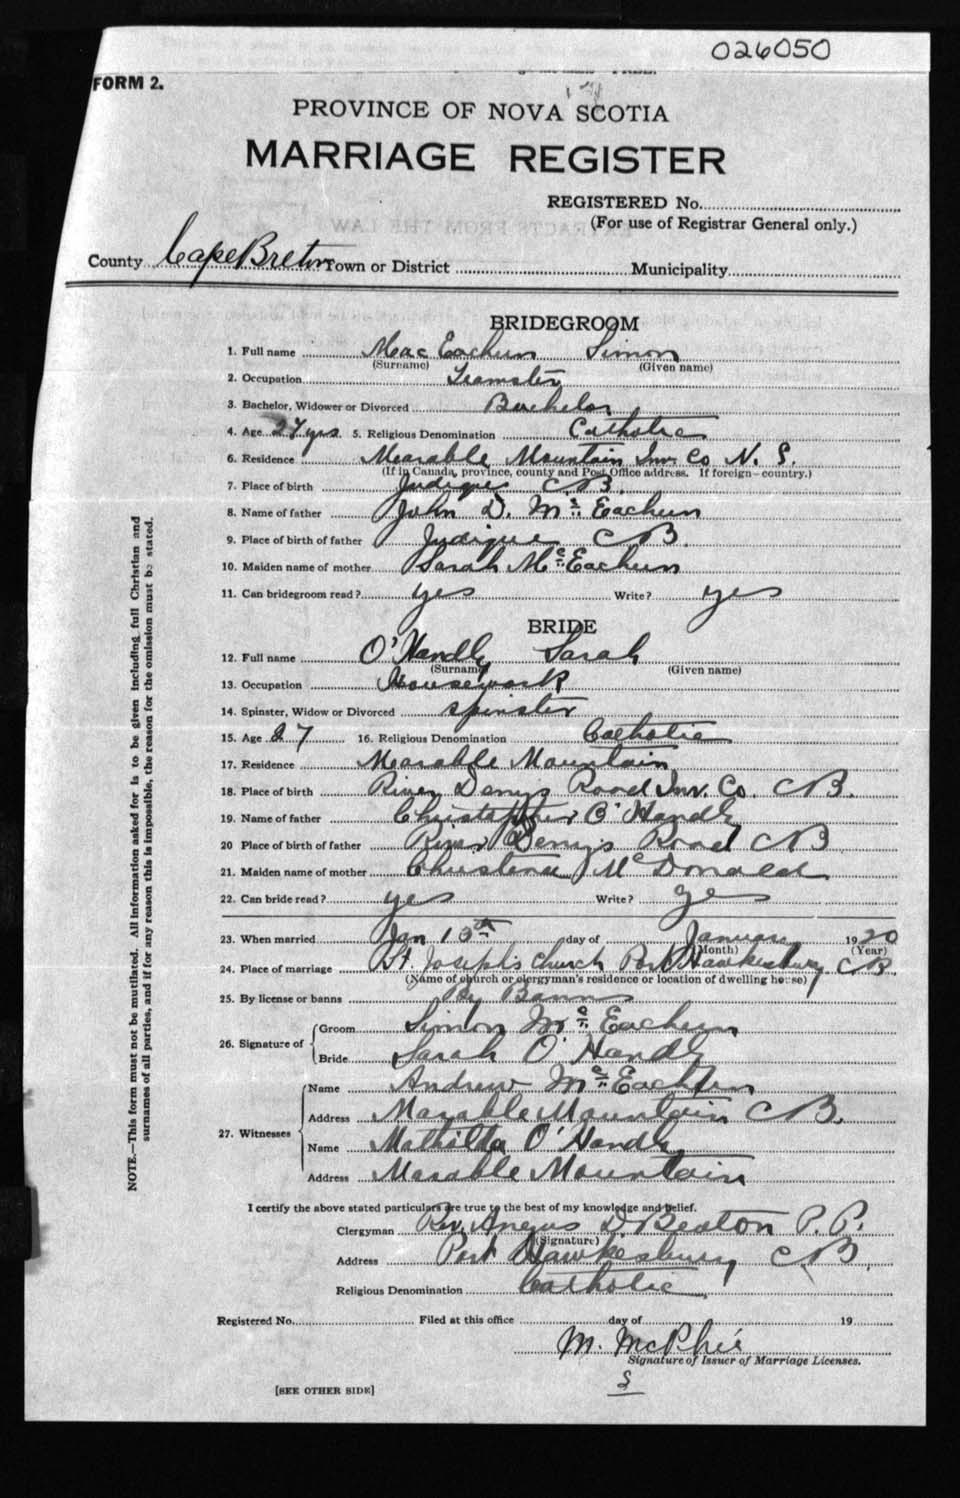 026050
FORM 2.
PROVINCE OF NOVA SCOTIA
MARRIAGE REGISTER
REGISTERED No.
(For use of Registrar General only.)
County Cape Breton Town or District Municipality
BRIDEGROOM
1. Full name Mac Eachern Simon
(Surname) (Given name)
2. Occupation Teamster
3. Bachelor, Widower or Divorced Bachelor
4. Age 27 yrs. 5. Religious Denomination Catholic
6. Residence Marable Mountain Inv. Co N. S.
(If in Canada, province, county and Post Office address. If foreign—country.)
7. Place of birth Judique CB.
8. Name of father John D. Mc Eachern
9. Place of birth of father Judique CB.
10. Maiden name of mother Sarah Mc Eachern
11. Can bridegroom read? yes Write? yes
BRIDE
12. Full name O'Handly Sarah
(Surname) (Given name)
13. Occupation Housework
14. Spinster, Widow or Divorced spinster
15. Age 27 16. Religious Denomination Catholic
17. Residence Marable Mountain
18. Place of birth River Denys Road Inv. Co. CB.
19. Name of father Christopher O'Handly
20 Place of birth of father River Denys Road CB
21. Maiden name of mother Christena McDonald
22. Can bride read? yes Write? yes
23. When married Jan 13th day of January 1920
(Month) (Year)
24. Place of marriage St Joseph's Church Port Hawkesbury CB.
(Name of church or clergyman's residence or location of dwelling house)
25. By license or banns By Banns
26. Signature of Groom Simon Mc Eachern
Bride Sarah O'Handly
27. Witnesses Name Andrew Mc Eachern
Address Marable Mountain CB.
Name Mathilda O'Handly
Address Marable Mountain
I certify the above stated particulars are true to the best of my knowledge and belief.
Clergyman Rev. Angus D Beaton P. P.
(Signature)
Address Port Hawkesbury CB.
Religious Denomination Catholic
Registered No. Filed at this office day of 19
M. McPhie
Signature of Issuer of Marriage Licenses.
[SEE OTHER SIDE]
NOTE.—This form must not be mutilated. All information asked for is to be given including full Christian and
surnames of all parties, and if for any reason this is impossible, the reason for the omission must be stated.